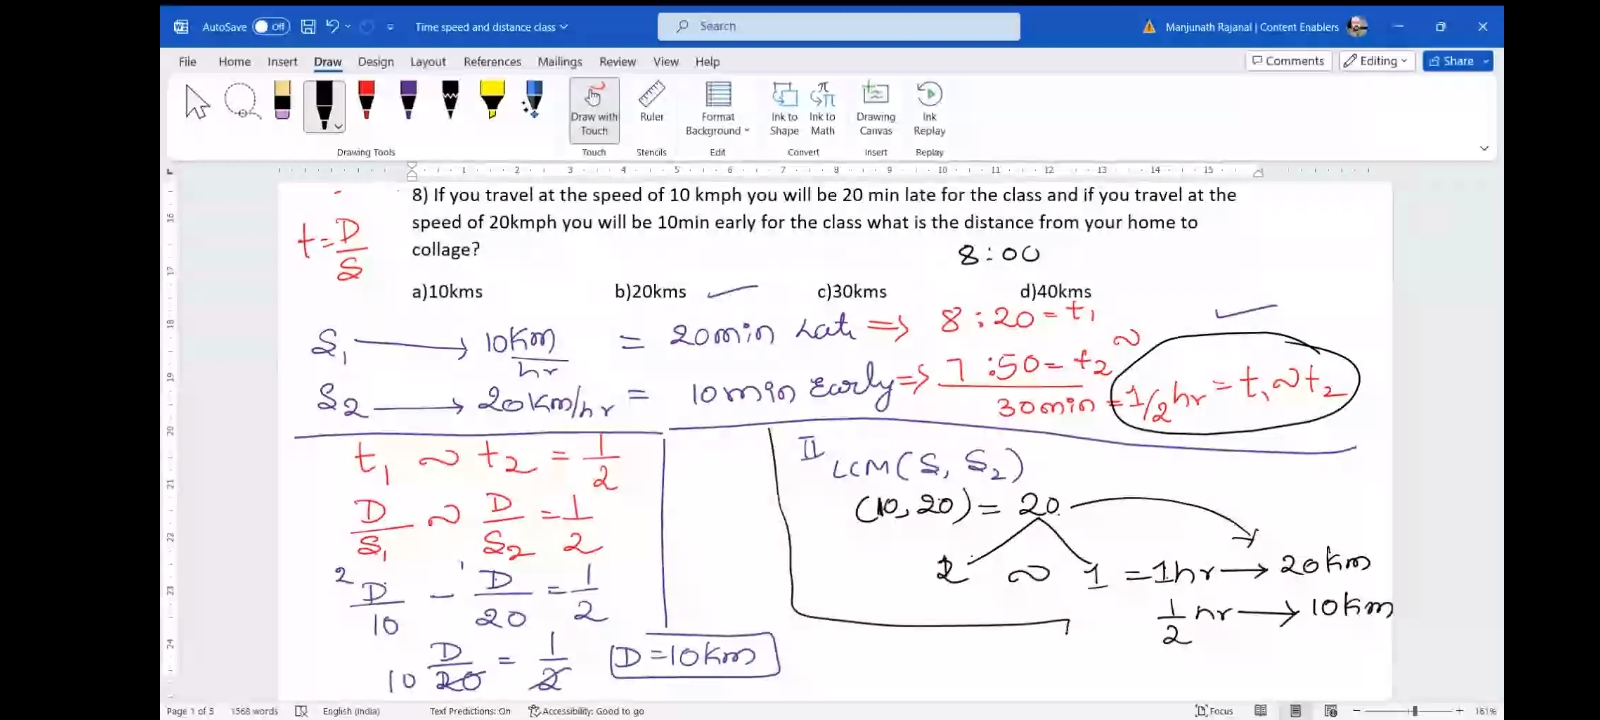 AutoSave Off Time speed and distance class Search Manjunath Rajanal | Content Enablers
File Home Insert Draw Design Layout References Mailings Review View Help Comments Editing Share
Draw with Touch Ruler Format Background Ink to Shape Ink to Math Drawing Canvas Ink Replay
Drawing Tools Touch Stencils Edit Convert Insert Replay
1 2 3 4 5 6 7 8 9 10 11 12 13 14 15
16 17 18 19 20 21 22 23 24
8) If you travel at the speed of 10 kmph you will be 20 min late for the class and if you travel at the
speed of 20kmph you will be 10min early for the class what is the distance from your home to
collage?
t = D/S
8:00
a)10kms b)20kms c)30kms d)40kms
S1 → 10Km/hr = 20min Late ⇒ 8:20 = t1
S2 → 20Km/hr = 10min Early ⇒ 7:50 = t2 ~
30min = 1/2 hr = t1 ~ t2
t1 ~ t2 = 1/2
D/S1 ~ D/S2 = 1/2
2 D/10 - 1 D/20 = 1/2
10 D/20 = 1/2 D = 10Km
II LCM(S, S2)
(10,20) = 20
2 ~ 1 = 1hr → 20Km
1/2 hr → 10Km
Page 1 of 5 1568 words English (India) Text Predictions: On Accessibility: Good to go Focus 161%